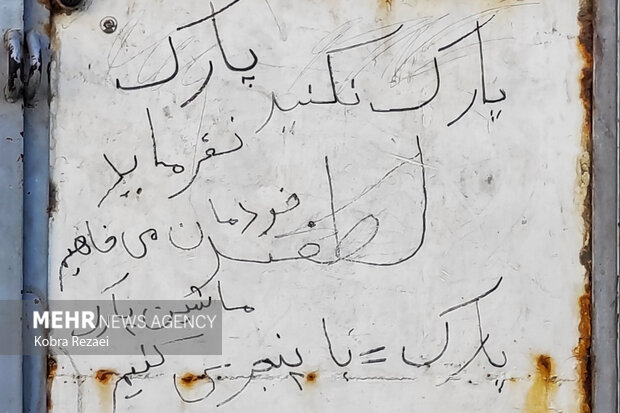 پارک نکنید پارک
نفرمایید
لطفن
خودمان می خواهیم
ماشین پارک
کنیم
پارک = با پنجری
MEHR NEWS AGENCY
Kobra Rezaei